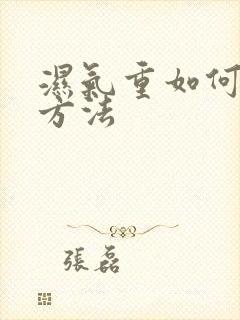 濕氣重如何
方法
張磊